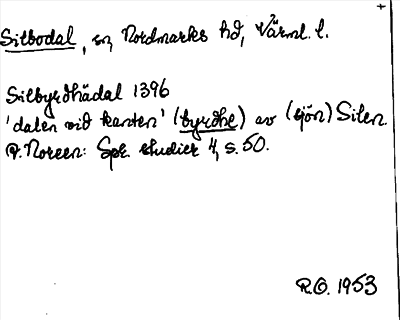 +
Silbodal, sn, Nordmarks hd, Värml. l.
Silbyrdhädal 1396
'dalen vid kanten' (byrdhe) av (sjön) Silen.
A. Noreen: Spr. studier 4, s. 50.
R.O. 1953